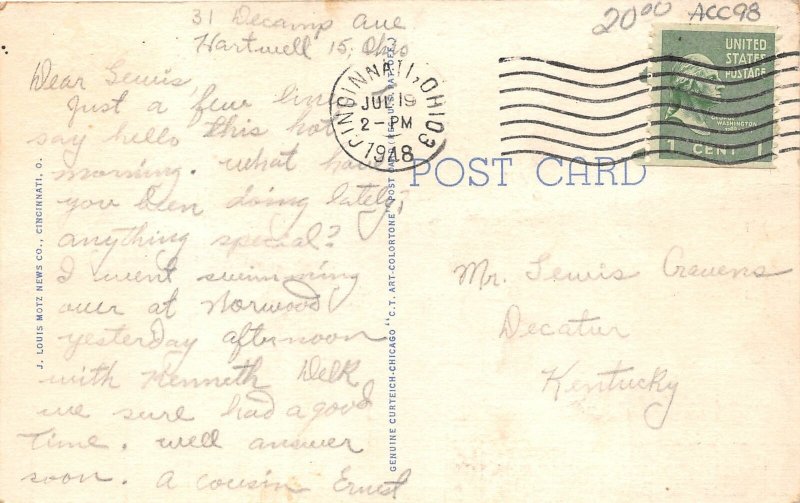 31 Decamp Ave
Hartwell 15, Ohio
20⁰⁰ ACC98
UNITED
STATES
POSTAGE
GEORGE
WASHINGTON
1 CENT 1
CINCINNATI, OHIO 3
JUL 19
2-PM
1948
POST CARD
Dear Lewis
Just a few lines
say hello this hot
morning. what have
you been doing lately,
anything special?
I went swimming
over at Norwood
yesterday afternoon
with Kenneth Delk
we sure had a good
time. well answer
soon. a cousin Ernest
Mr. Lewis Cravens
Decatur
Kentucky
J. LOUIS MOTZ NEWS CO., CINCINNATI, O.
GENUINE CURTEICH-CHICAGO "C.T. ART-COLORTONE" POST CARD (REG. U.S. PAT. OFF.)